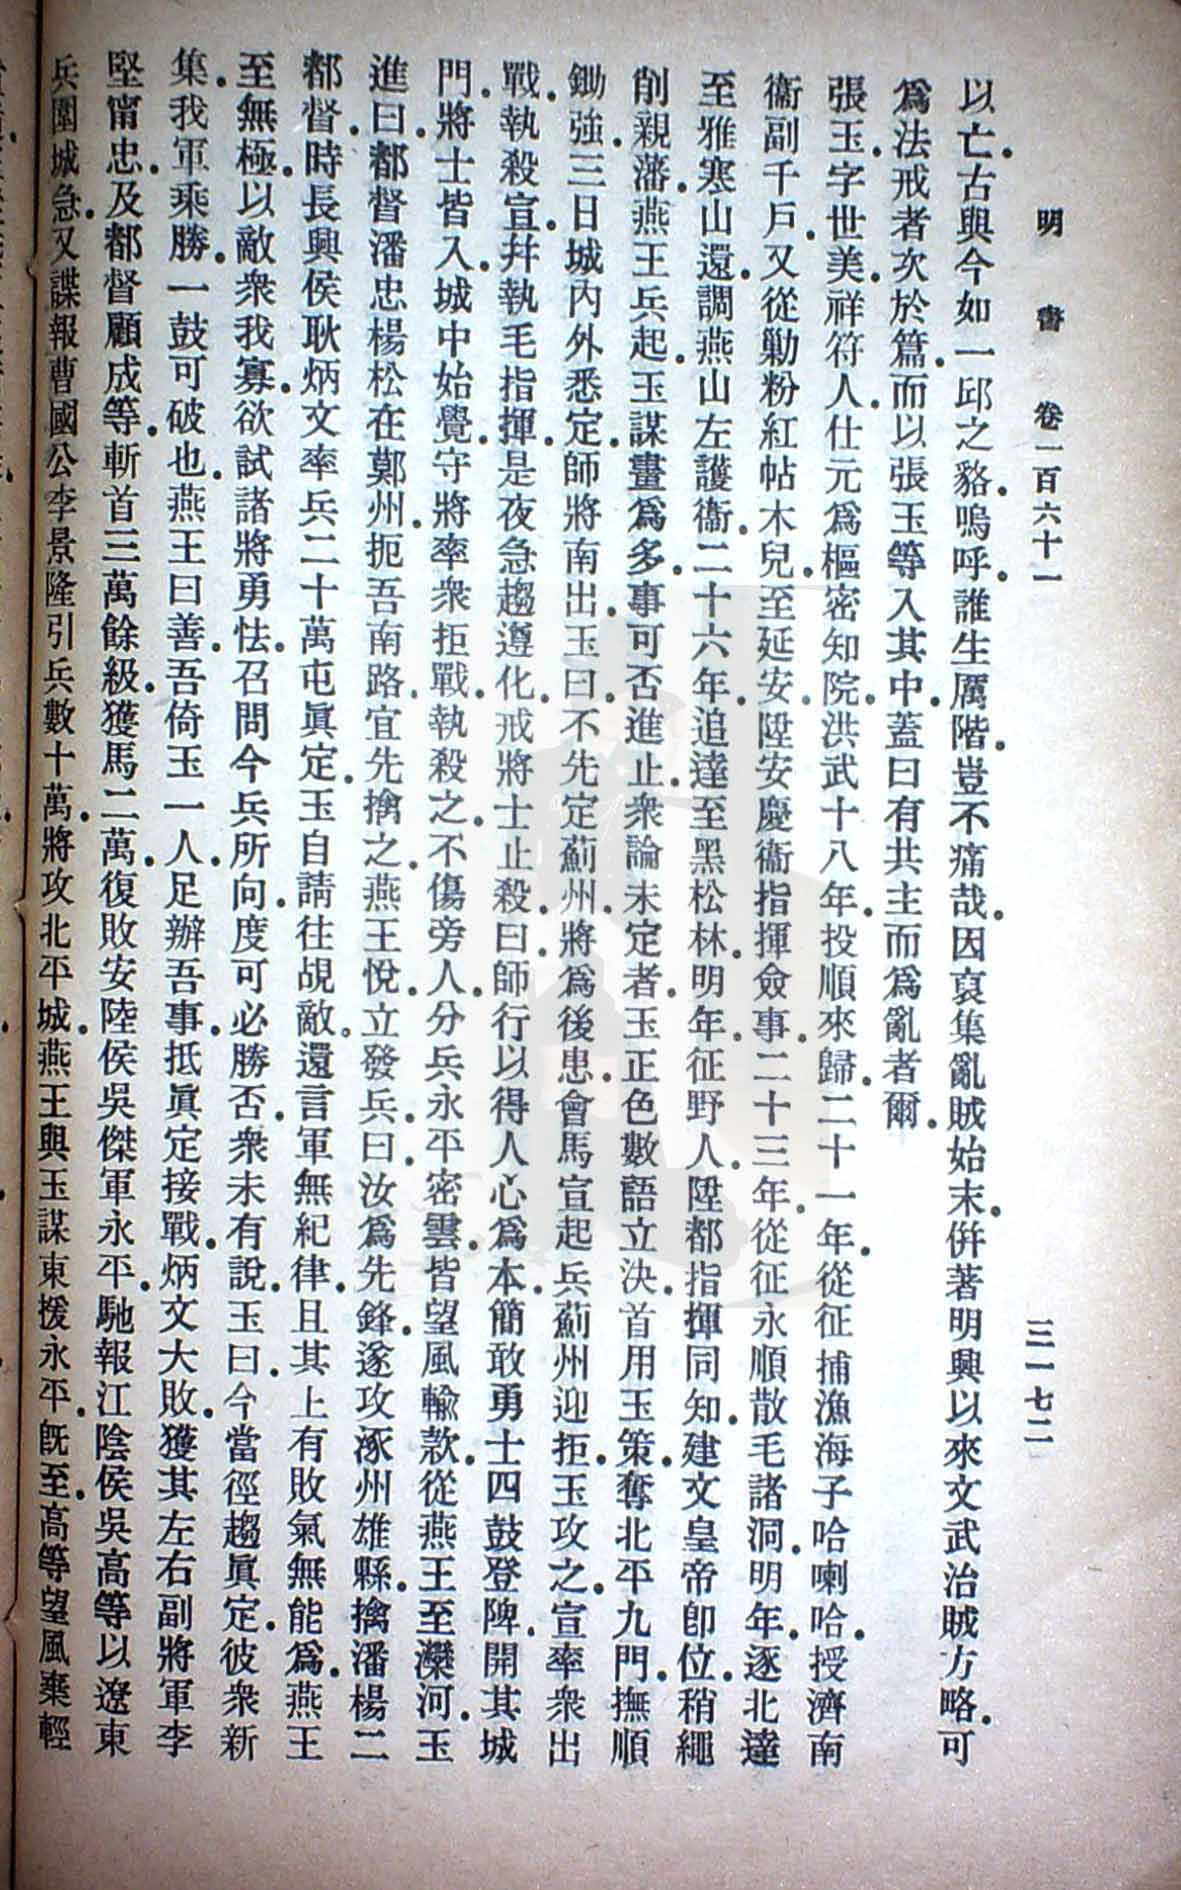 明書 卷一百六十一 三一七二
以亡。古與今如一邱之貉。嗚呼。誰生厲階。豈不痛哉。因裒集亂賊始末。併著明興以來文武治賊方略。可
爲法戒者次於篇。而以張玉等入其中。蓋曰有共主而爲亂者爾。
張玉。字世美。祥符人。仕元爲樞密知院。洪武十八年。投順來歸。二十一年。從征捕漁海子哈喇哈。授濟南
衞副千戶。又從勦粉紅帖木兒。至延安。陞安慶衞指揮僉事。二十三年。從征永順散毛諸洞。明年。逐北達
至雅寒山。還。調燕山左護衞。二十六年。追達至黑松林。明年。征野人。陞都指揮同知。建文皇帝卽位。稍繩
削親藩。燕王兵起。玉謀畫爲多。事可否進止。衆論未定者。玉正色數語立決。首用玉策。奪北平九門。撫順
鋤強。三日城內外悉定。師將南出。玉曰。不先定薊州。將爲後患。會馬宣起兵薊州迎拒。玉攻之。宣率衆出
戰。執殺宣。幷執毛指揮。是夜急趨遵化。戒將士止殺。曰。師行以得人心爲本。簡敢勇士四鼓登陴。開其城
門。將士皆入。城中始覺。守將率衆拒戰。執殺之。不傷旁人。分兵永平密雲。皆望風輸款。從燕王至灤河。玉
進曰。都督潘忠楊松在鄭州。扼吾南路。宜先擒之。燕王悅。立發兵。曰。汝爲先鋒。遂攻涿州雄縣。擒潘楊二
都督。時長興侯耿炳文率兵二十萬屯眞定。玉自請往覘敵。還言軍無紀律。且其上有敗氣無能爲。燕王
至無極。以敵衆我寡。欲試諸將勇怯。召問今兵所向。度可必勝否。衆未有說。玉曰。今當徑趨眞定。彼衆新
集。我軍乘勝。一鼓可破也。燕王曰善。吾倚玉一人。足辦吾事。抵眞定接戰。炳文大敗。獲其左右副將軍李
堅甯忠。及都督顧成等。斬首三萬餘級。獲馬二萬。復敗安陸侯吳傑軍永平。馳報江陰侯吳高等以遼東
兵圍城急。又諜報曹國公李景隆引兵數十萬。將攻北平城。燕王與玉謀東援永平。旣至。高等望風棄輕